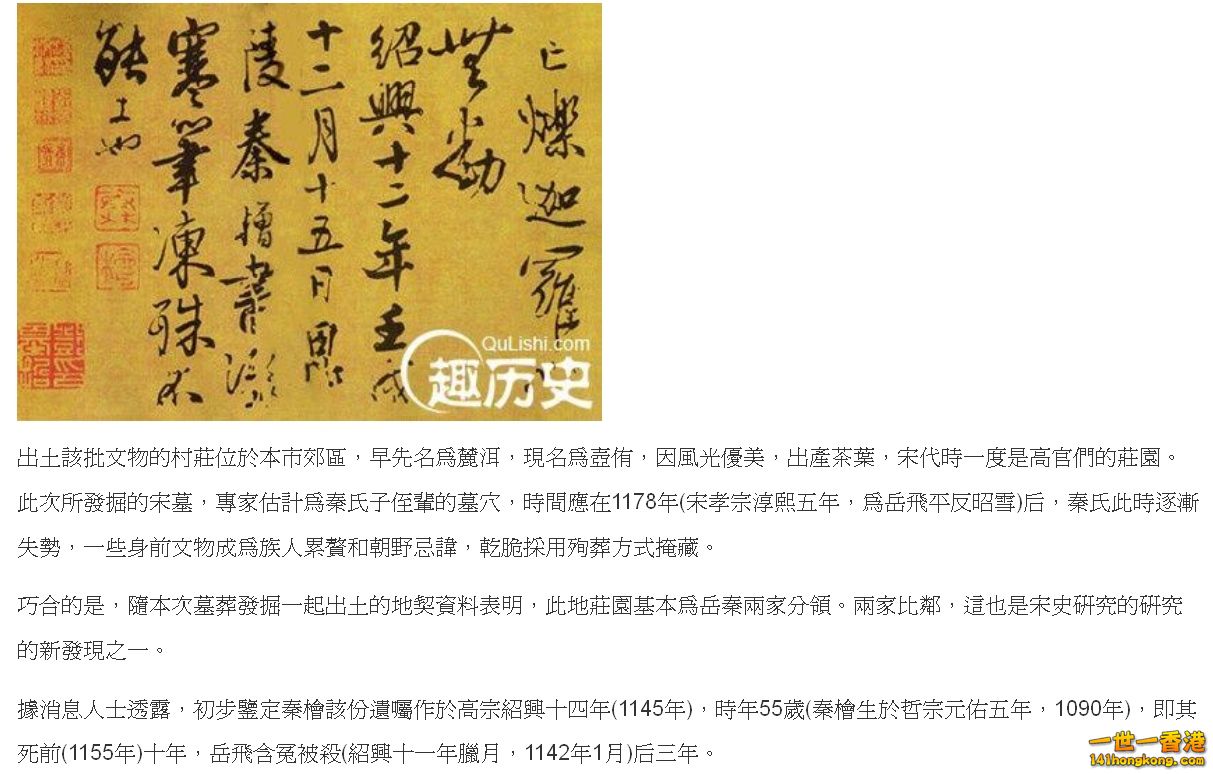 亡爍迦羅
無動
紹興十二年壬戌
十二月十五日
陵秦檜書
寒筆凍殊不
能工也
QuLishi.com
趣历史
出土該批文物的村莊位於本市郊區，早先名爲麓洱，現名爲壺侑，因風光優美，出產茶葉，宋代時一度是高官們的莊園。
此次所發掘的宋墓，專家估計爲秦氏子侄輩的墓穴，時間應在1178年(宋孝宗淳熙五年，爲岳飛平反昭雪)后，秦氏此時逐漸
失勢，一些身前文物成爲族人累贅和朝野忌諱，乾脆採用殉葬方式掩藏。
巧合的是，隨本次墓葬發掘一起出土的地契資料表明，此地莊園基本爲岳秦兩家分領。兩家比鄰，這也是宋史硏究的硏究
的新發現之一。
據消息人士透露，初步鑒定秦檜該份遺囑作於高宗紹興十四年(1145年)，時年55歲(秦檜生於哲宗元佑五年，1090年)，即其
死前(1155年)十年，岳飛含冤被殺(紹興十一年臘月，1142年1月)后三年。
一世一香港
141hongkong.com